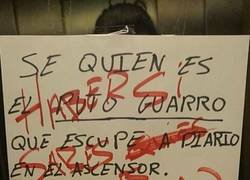 SE QUIEN ES
EL PUTO GUARRO
QUE ESCUPE A DIARIO
EN EL ASCENSOR.
HABERSi